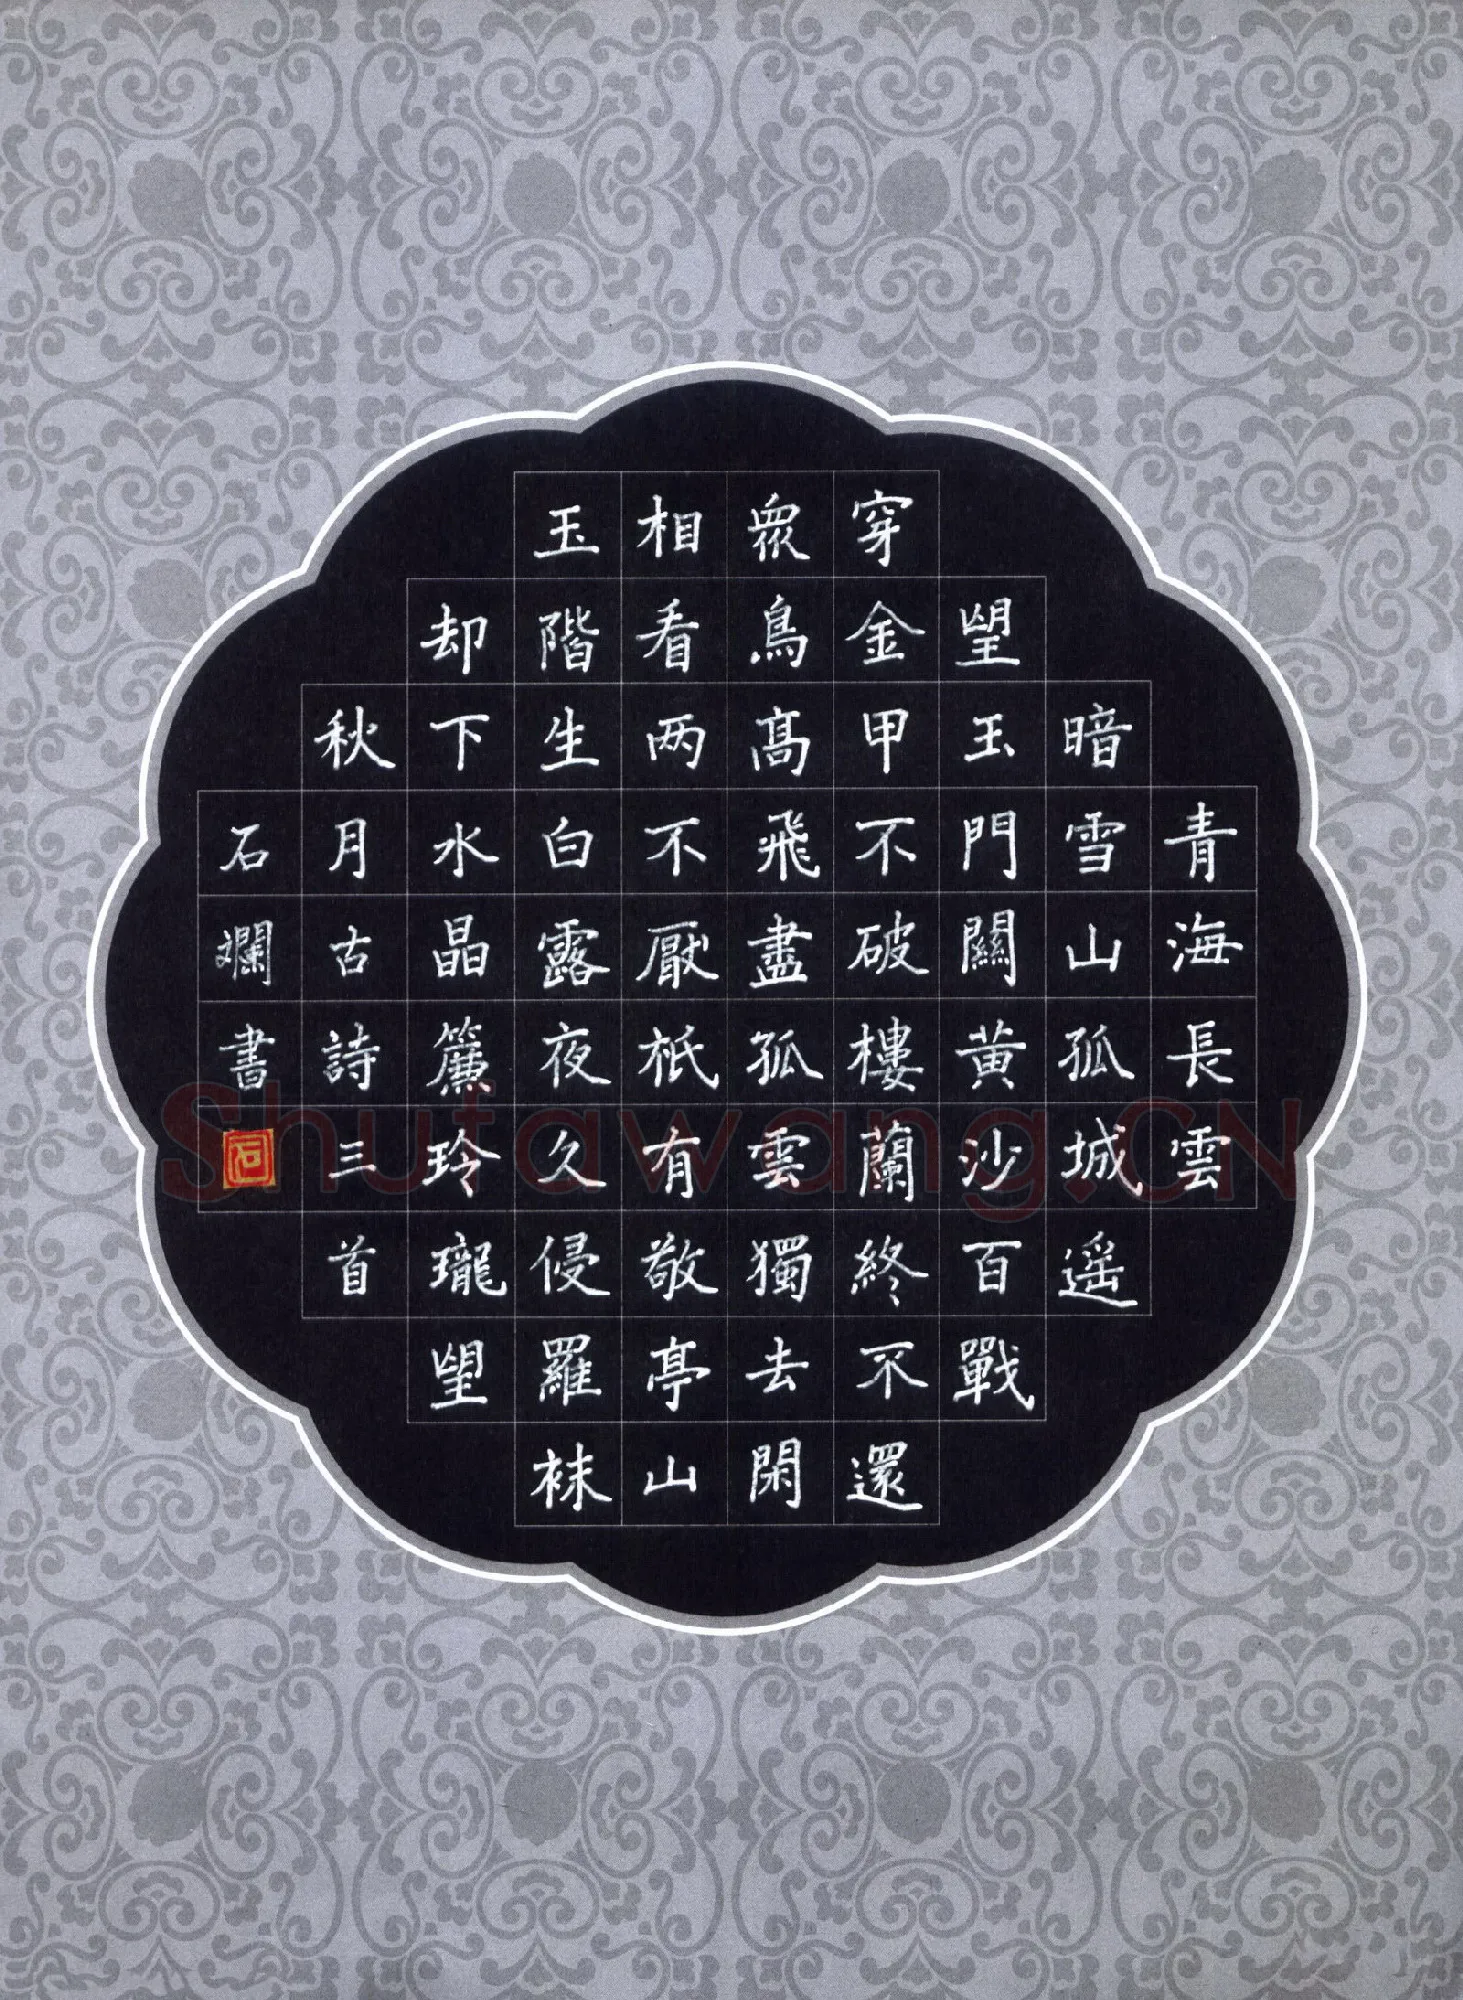 青海長雲
暗雪山孤城遥
望玉門關黄沙百戰
穿金甲不破樓蘭終不還
衆鳥高飛盡孤雲獨去閑
相看两不厭祇有敬亭山
玉階生白露夜久侵羅袜
却下水晶簾玲瓏望
秋月古詩三首
石斕書
石
Shufawang.CN